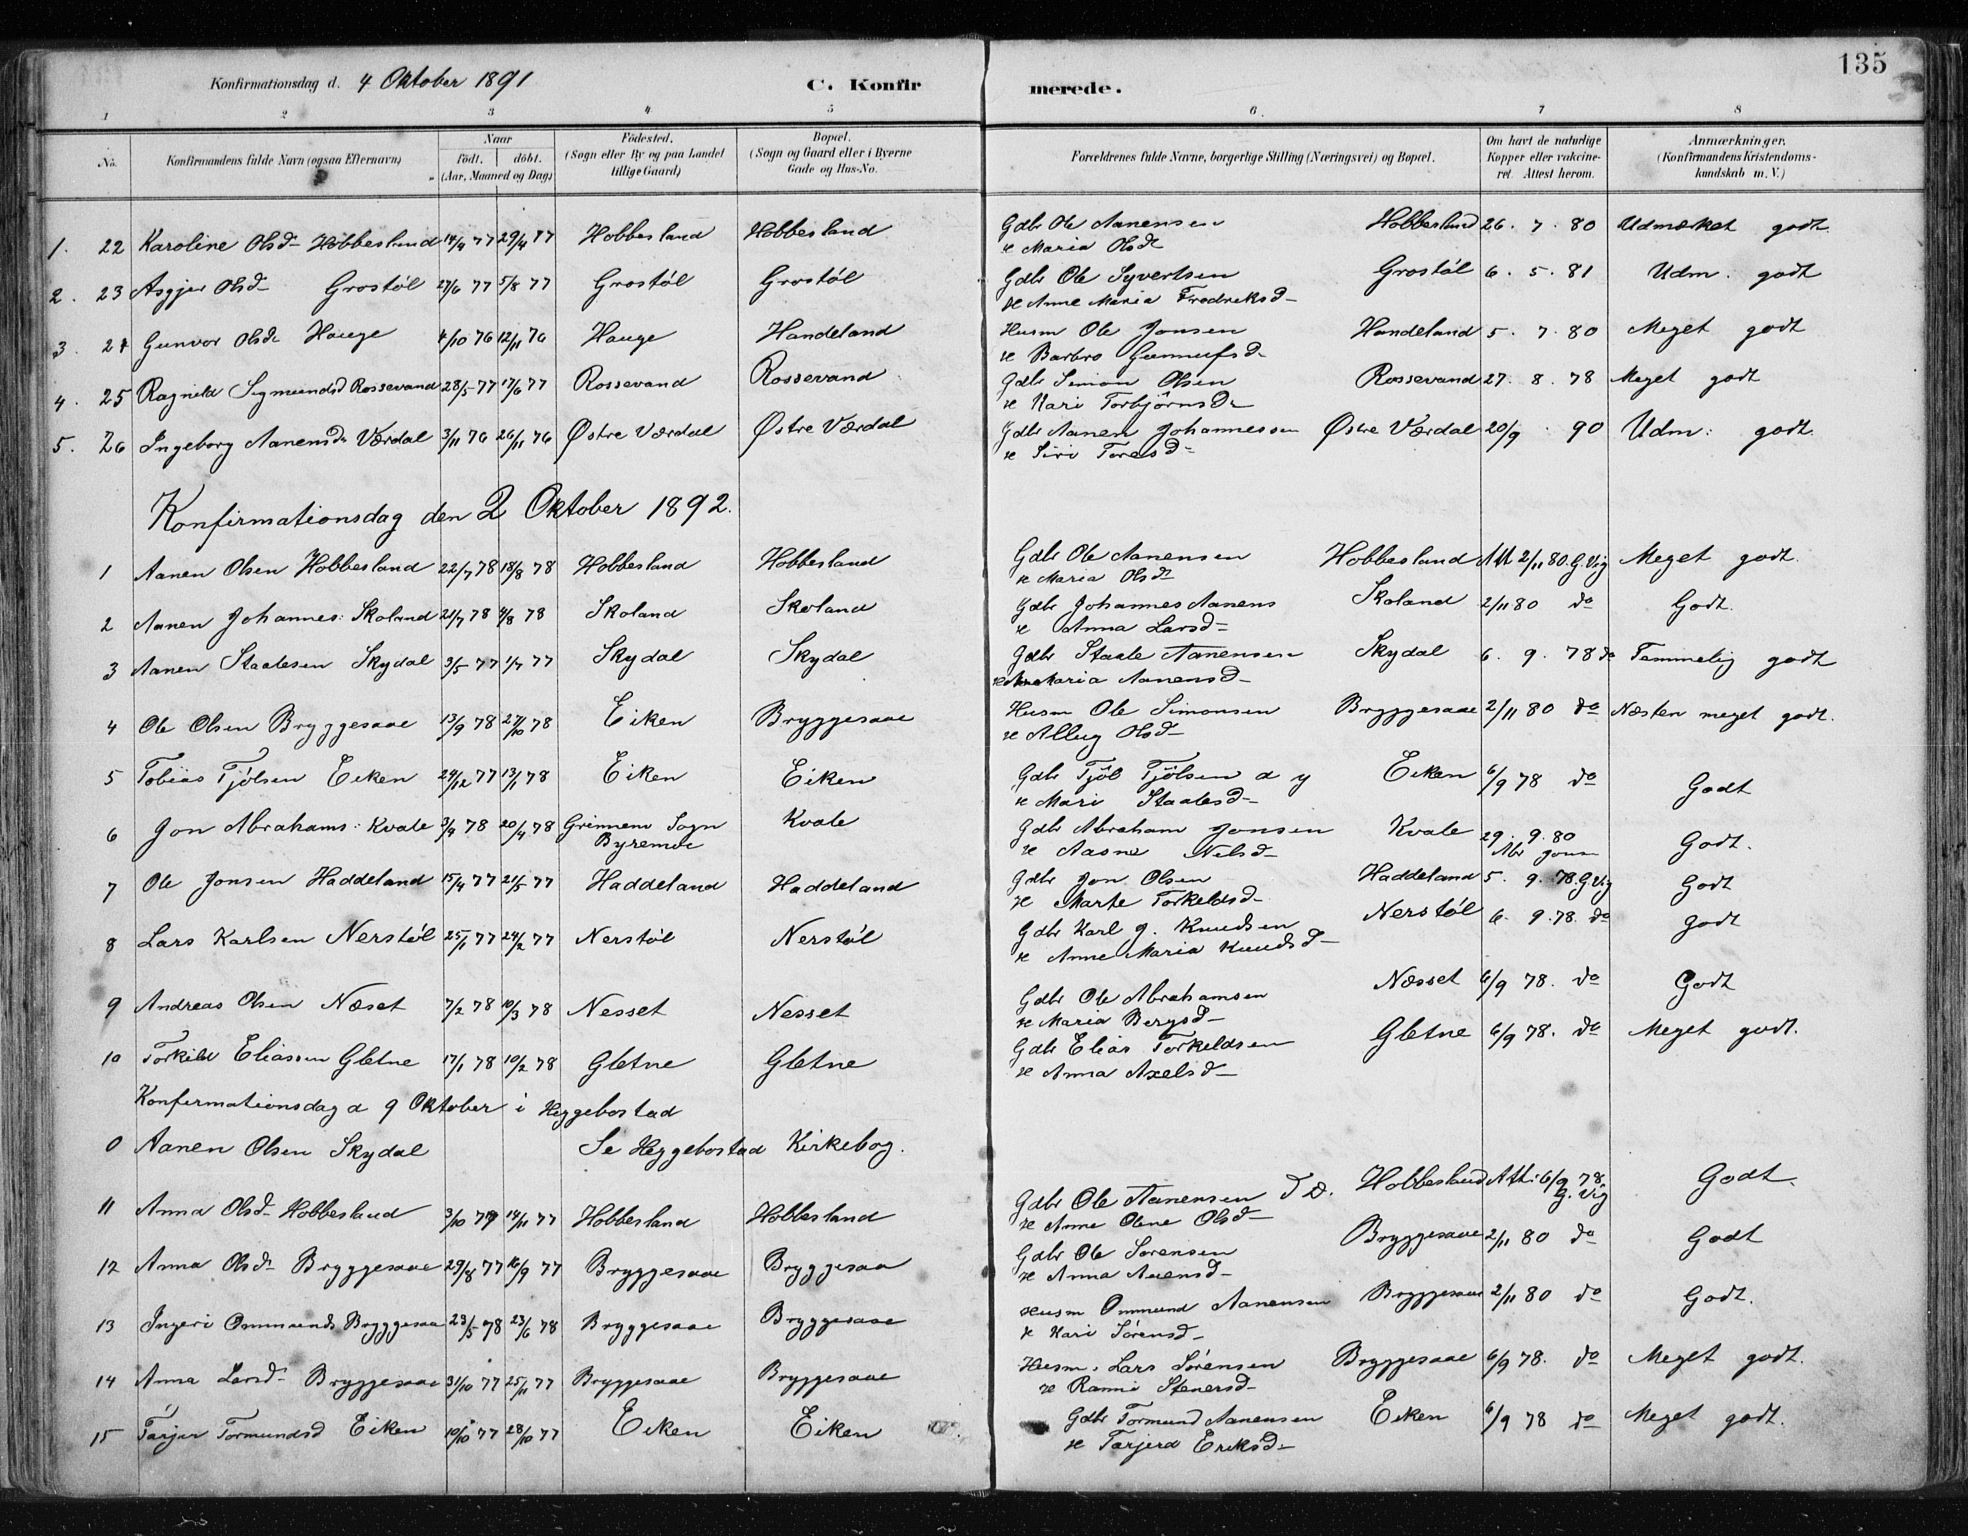 135
Konfirmationsdag d. 4 Oktober 1891 C. Konfirmerede.
1 2 3 4 5 6. 7 8
No. Konfirmandens fulde Navn (ogsaa Efternavn) Naar födt. döbt. (Aar, Maaned og Dag) Födested. (Sogn eller By og paa Landet tillige Gaard) Bopæl. (Sogn og Gaard eller i Byerne Gade og Hus-No. Forældrenes fulde Navne, borgerlige Stilling (Næringsvei) og Bopæl. Om havt de naturlige Kopper eller vakcineret. Attest herom. Anmærkninger. (Konfirmandens Kristendomskundskab m. V.)
1. 22 Karoline Olsd Hobbesland 14/4 77 29/4 77 Hobbesland Hobbesland Gdbr Ole Aanensen Hobbesland 26. 7. 80 Udmærket godt
& Maria Olsd
2. 23 Asgjer Olsd Grostöl 27/6 77 5/8 77 Grostöl Grostöl Gdbr Ole Syvertsen Grostöl 6. 5. 81 Udm. godt
& Anne Maria Fredreksd
3. 24 Gunvor Olsd Hauge 4/10 76 12/11 76 Hauge Handeland Husm Ole Jonsen Handeland 5. 7. 80 Meget godt
& Barbro Gunnufsd
4. 25 Ragnild Sigmundsd Rossevand 28/5 77 17/6 77 Rossevand Rossevand Gdbr Simon Olsen Rossevand 27. 8. 78 Meget godt
& Kari Torbjörnsd
5. 26 Ingeborg Aanensd Værdal 3/11 76 26/11 76 Østre Værdal Østre Værdal Gdbr Aanen Johannessen Østre Værdal 20/9 90 Udm: godt.
& Siri Toresd
Konfirmationsdag den 2 Oktober 1892.
1 Aanen Olsen Hobbesland 22/7 78 18/8 78 Hobbesland Hobbesland Gdbr Ole Aanensen Hobbesland Att 2/11 80. G. Vig Meget godt.
& Maria Olsd
2 Aanen Johannes: Skoland 21/7 78 4/8 78 Skoland Skoland Gdbr Johannes Aanens Skoland 2/11 80 do Godt.
& Anna Larsd
3 Aanen Staalesen Skydal 3/5 77 1/7 77 Skydal Skydal Gdbr Staale Aanensen Skydal 6. 9. 78 do Temmelig godt
& Maria Aanensd
4 Ole Olsen Bryggesaae 13/9 78 27/10 78 Eiken Bryggesaae Husm Ole Simonsen Bryggesaae 2/11 80 do Næsten meget godt.
& Allug Olsd
5 Tobias Tjölsen Eiken 24/12 77 13/1 78 Eiken Eiken Gdbr Tjöl Tjölsen d y Eiken 6/9 78 do Godt
& Mari Staalesd
6 Jon Abrahams: Kvale 3/4 78 20/4 78 Grinnem Sogn Kvale Gdbr Abraham Jonsen Kvale 29. 9. 80 Godt.
Byremoe & Aasne Nelsd Abr Jonsn
7 Ole Jonsen Haddeland 15/4 77 21/5 77 Haddeland Haddeland Gdbr Jon Olsen Haddeland 5. 9. 78. G Vig Godt
& Marte Torkeldsd
8 Lars Karlsen Nerstöl 25/1 77 24/2 77 Nerstöl Nerstöl Gdbr Karl g. Knudsen Nerstöl 6. 9. 78. do godt
& Anne Maria Knudsd
9 Andreas Olsen Næset 7/2 78 10/3 78 Nesset Nesset Gdbr Ole Abrahamsen Næsset 6/9 78. do Godt
& Maria Bergsd
10 Torkild Eliassen Gletne 17/1 78 10/2 78 Gletne Gletne Gdbr Elias Torkeldsen Gletne 6/9 78. do Meget godt.
& Anna Axelsd
Konfirmationsdag d 9 Oktober i Heggebostad
0 Aanen Olsen Skydal Se Heggebostad Kirkebog.
11 Anna Olsd Hobbesland 3/10 77 14/11 77 Hobbesland Hobbesland Gdbr Ole Aanensen Hobbesland Att: 6/9 78. G. Vig Godt.
& Anne Olene Olsd
12 Anna Olsd Bryggesaae 29/8 77 16/9 77 Bryggesaae Bryggesaa Gdbr Ole Sørensen Bryggesaae 2/11 80 do Godt
& Anna Auensd
13 Ingeri Ommunds Bryggesaa 23/5 78 23/6 78 Bryggesaae Bryggesaae Husm Ommund Aanensen Bryggesaae 2/11 80 do Godt.
& Kari Sörensd
14 Anna Larsd Bryggesaae 31/10 77 25/11 77 Bryggesaae Bryggesaae Husm. Lars Sörensen Bryggesaae 6/9 78. do Meget godt.
& Ranni Stenersd
15 Tarjer Tormundsd Eiken 10/10 77 28/10 77 Eiken Eiken Gdbr Tormund Aanensen Eiken 6/9 78 do Meget godt.
& Tarjerd Eriksd